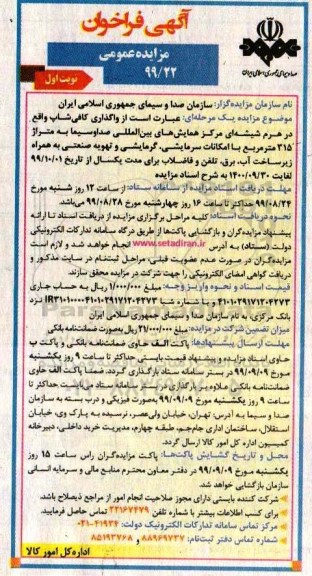 آگهی فراخوان
مزایده عمومی
۹۹/۲۲
نوبت اول
صدا و سیمای جمهوری اسلامی ایران
نام سازمان مزایده‌گزار: سازمان صدا و سیمای جمهوری اسلامی ایران
موضوع مزایده یک مرحله‌ای: عبارت است از واگذاری کافی‌شاپ واقع
در هرم شیشه‌ای مرکز همایش‌های بین‌المللی صداوسیما به متراژ
۳۱۵ مترمربع با امکانات سرمایشی، گرمایشی و تهویه صنعتی به همراه
زیرساخت آب، برق، تلفن و فاضلاب برای مدت یکسال از تاریخ ۹۹/۱۰/۰۱
لغایت ۱۴۰۰/۰۹/۳۰ به شرح اسناد مزایده
مهلت دریافت اسناد مزایده از سامانه ستاد: از ساعت ۱۲ روز شنبه مورخ
۹۹/۰۸/۲۴ حداکثر تا ساعت ۱۶ روز چهارشنبه مورخ ۹۹/۰۸/۲۸ می‌باشد.
نحوه دریافت اسناد: کلیه مراحل برگزاری مزایده از دریافت اسناد تا ارائه
پیشنهاد مزایده‌گران و بازگشایی پاکت‌ها از طریق درگاه سامانه تدارکات الکترونیکی
دولت (ستاد) به آدرس www.setadiran.ir انجام خواهد شد و لازم است
مزایده‌گران در صورت عدم عضویت قبلی، مراحل ثبت‌نام در سایت مذکور و
دریافت گواهی امضای الکترونیکی را جهت شرکت در مزایده محقق سازند.
قیمت اسناد و نحوه واریز وجه: مبلغ ۱/۰۰۰/۰۰۰ ریال به حساب جاری
۴۱۰۱۰۲۹۱۷۱۲۰۴۲۷۳ و یا شماره شبا IR۳۱۰۱۰۰۰۰۴۱۰۱۰۲۹۱۷۱۲۰۴۲۷۳ نزد
بانک مرکزی، به نام سازمان صدا و سیمای جمهوری اسلامی ایران
میزان تضمین شرکت در مزایده: مبلغ ۲۱/۰۰۰/۰۰۰ ریال به‌صورت ضمانت‌نامه بانکی
مهلت ارسال پیشنهادها: پاکت الف حاوی ضمانت‌نامه بانکی و پاکت ب
حاوی اسناد مزایده و پیشنهاد قیمت بایستی حداکثر تا ساعت ۹ روز یکشنبه
مورخ ۹۹/۰۹/۰۹ در بستر سامانه ستاد بارگذاری گردد، ضمناً پاکت الف حاوی
ضمانت‌نامه بانکی علاوه بر بارگذاری در سامانه ستاد بایست حداکثر تا
ساعت ۹ روز یکشنبه مورخ ۹۹/۰۹/۰۹ به‌صورت فیزیکی و درب بسته به سازمان
صدا و سیما به آدرس: تهران، خیابان ولی‌عصر، نرسیده به پارک وی، خیابان
استقلال، ساختمان اداری جام‌جم، طبقه چهارم، مدیریت خرید داخلی، دبیرخانه
کمیسیون اداره کل امور کالا ارسال گردد.
محل و تاریخ گشایش پاکت‌ها: پاکت مزایده‌گران راس ساعت ۱۵ روز
یکشنبه مورخ ۹۹/۰۹/۰۹ در دفتر معاون محترم منابع مالی و سرمایه انسانی
سازمان بازگشایی خواهد شد.
شرکت کننده بایستی دارای مجوز صلاحیت انجام امور از مراجع ذیصلاح باشد.
برای کسب اطلاعات بیشتر با شماره تلفن ۲۲۱۶۷۴۷۹ تماس حاصل فرمایید.
مرکز تماس سامانه تدارکات الکترونیک دولت: ۴۱۹۳۴-۰۲۱
شماره تماس دفتر ثبت‌نام: ۸۸۹۶۹۷۳۷ و ۸۵۱۹۳۷۶۸
اداره کل امور کالا